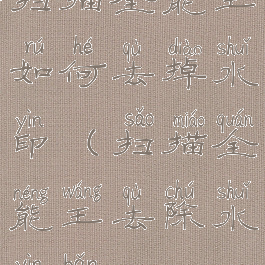 扫描全能王
rú hé qù diào shuǐ
如何去掉水
yìn sǎo miáo quán
印（扫描全
néng wáng qù chú shuǐ
能王去除水
yìn bǎn